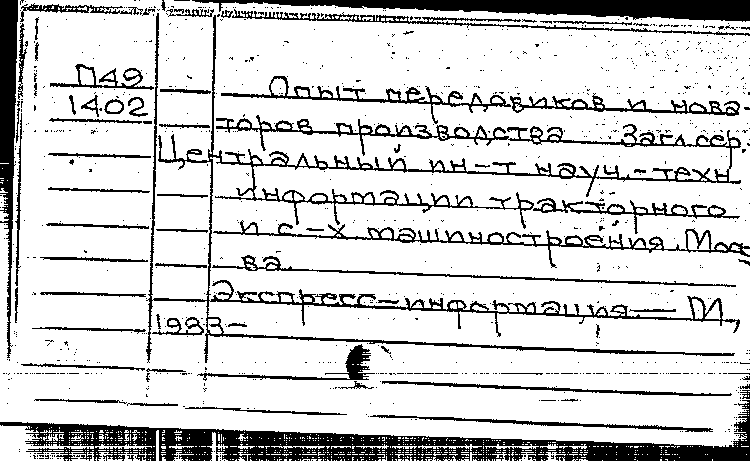 П49
1402
Опыт передовиков и нова-
торов производства Загл.сер.
Центральный ин-т науч.-техн.
информации тракторного
и с-х машиностроения. Моск
ва.
Экспресс-информация — М.,
1983-